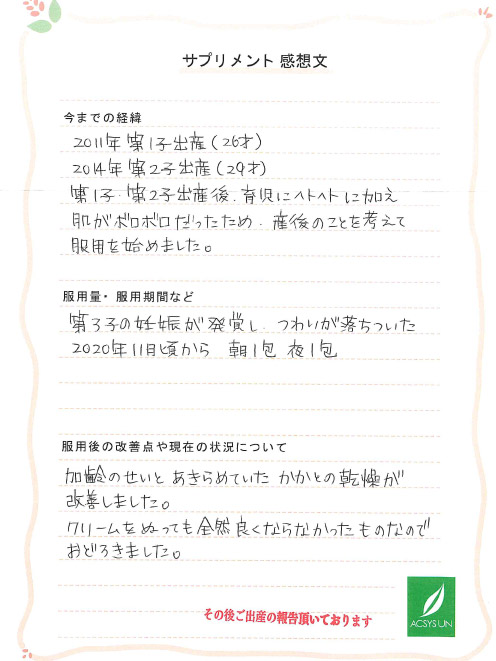 サプリメント 感想文
今までの経緯
2011年 第1子出産(26才)
2014年 第2子出産(29才)
第1子・第2子出産後、育児にヘトヘトに加え
肌がボロボロだったため、産後のことを考えて
服用を始めました。
服用量・服用期間など
第3子の妊娠が発覚し、つわりが落ちついた
2020年11月頃から 朝1包 夜1包
服用後の改善点や現在の状況について
加齢のせいと あきらめていた かかとの乾燥が
改善しました。
クリームをぬっても全然良くならなかったものなので
おどろきました。
その後ご出産の報告頂いております
ACSYSUN